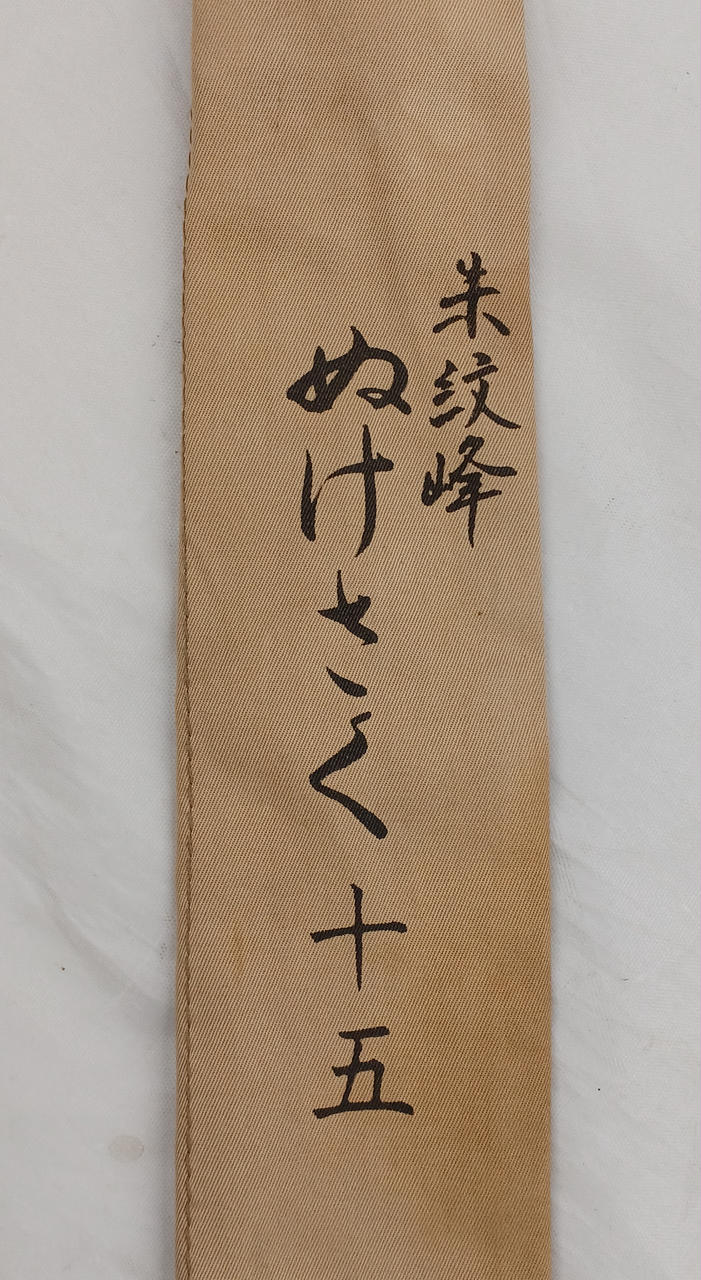 朱紋峰
ぬけさく十五